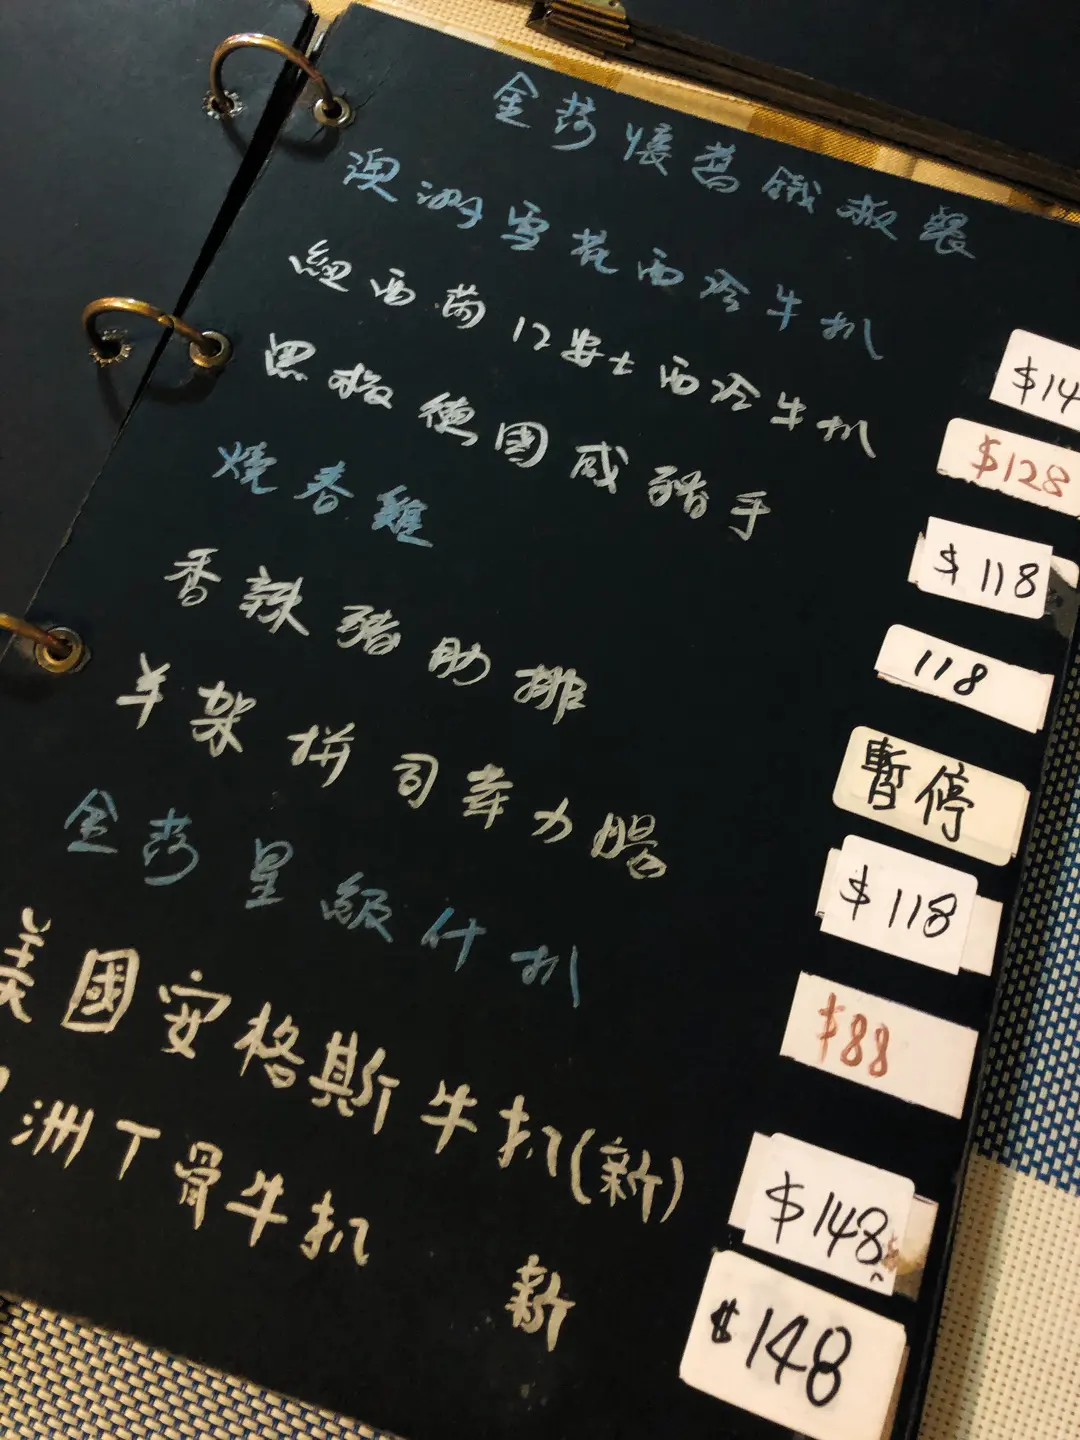 金莎懷舊鐵板餐
澳洲雪花西冷牛扒 $14
紐西蘭12安士西冷牛扒 $128
黑椒德國咸豬手 $118
燒春雞 118
香辣豬肋排 暫停
羊架拼司華力腸 $118
金莎星級什扒 $88
美國安格斯牛扒(新) $148
洲T骨牛扒 新 $148